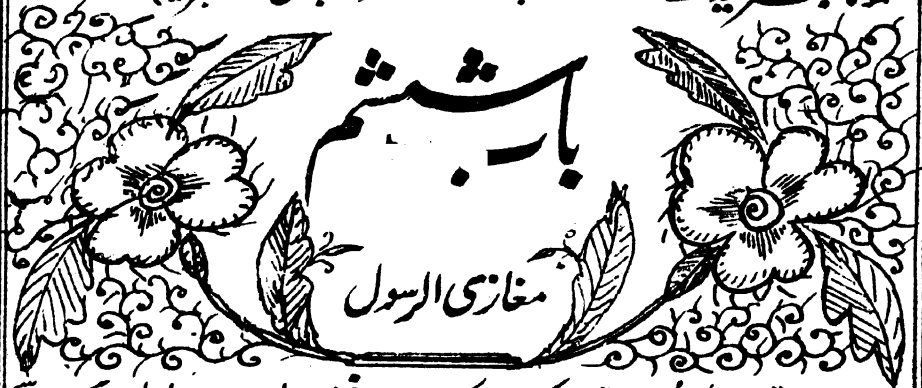 باب ششم
مغازی الرسول